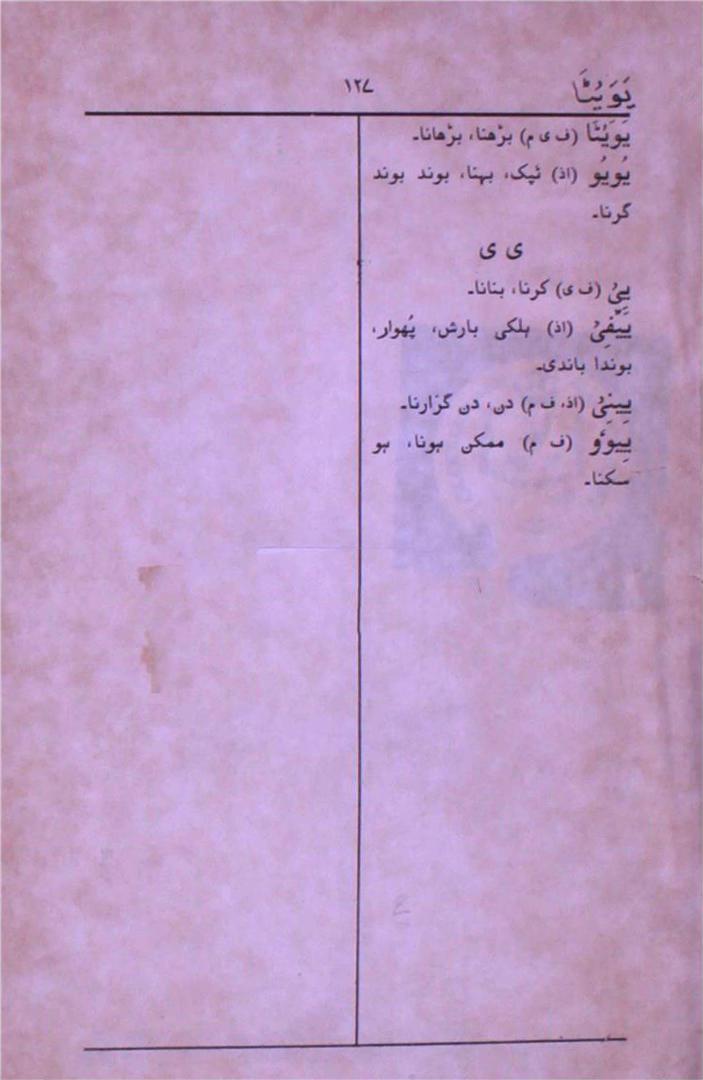 یَوَیُٹَا
۱۲۷
یَوِیُٹَا (ف ی م) بڑھنا، بڑھانا۔
یُویُو (اذ) ٹپک، بہنا، بوند بوند
گرنا۔
ی ی
یِیُ (ف ی) کرنا، بنانا۔
یِیفِیُ (اذ) ہلکی بارش، پُھوار،
بوندا باندی۔
یِینِیُ (اذ، ف م) دن، دن گزارنا۔
یِیوؤ (ف م) ممکن ہونا، ہو
سکنا۔